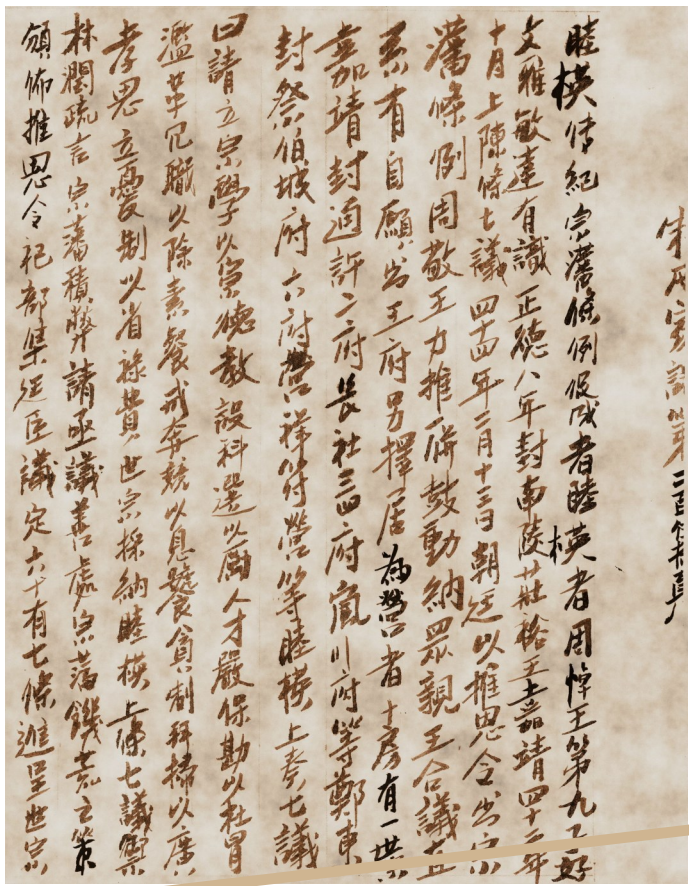 朱氏家訓第二百
睦楧傳紀宗藩條例促成者睦楧者周悼王第九子好
文雅敏達有識正德八年封南陵莊裕王嘉靖四十一年
十月上陳條七議四十四年二月十三日朝廷以推恩令出宗
藩條例周敬王力推屏鼓動納眾親王合議十五
有自願出王府另擇居為營者十房有一世
嘉靖封適許二府長社三四府嵐川府等鄭東
封祭伯城府六府營祥符營等睦楧上奏七議
曰請立宗學以崇德教設科選以勵人才嚴保勘以杜冒
濫革冗職以除素餐戒奔競以息饕貪制拜掃以廣
孝思立憂制以省祿費世宗採納睦楧上條七議禦
林潤疏言宗藩積弊請亟議善處宗藩饑荒之策
頒佈推恩令祀部集廷臣議定六十有七條進呈世宗